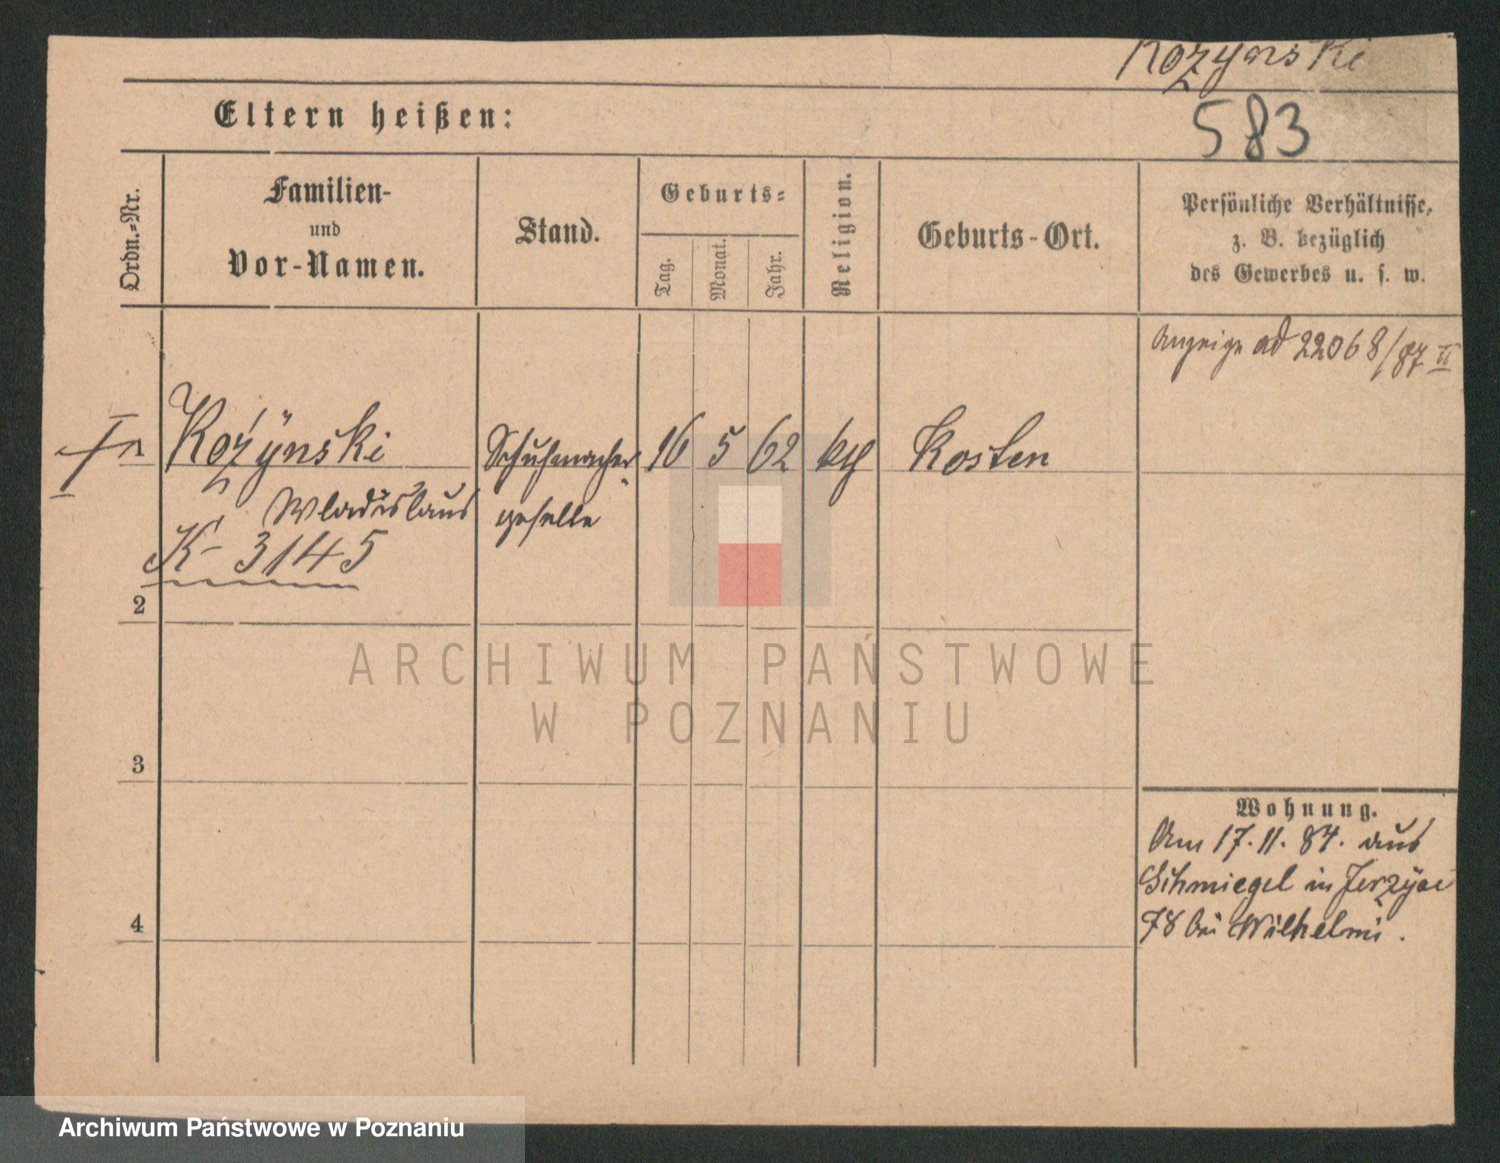 Kożyński
583
Eltern heißen:
Ordn.-Nr.
Familien-
und
Vor-Namen.
Stand.
Geburts-
Tag.
Monat.
Jahr.
Religion.
Geburts-Ort.
Persönliche Verhältnisse,
z. B. bezüglich
des Gewerbes u. s. w.
Anzeige ad 22068/87 II
Kożÿnski
Wladislaus
K- 3145
Schuhmacher-
geselle
16
5
62
kth
Kosten
2
3
4
Wohnung.
Am 17.11.87. aus
Schmiegel in Jerzyce
78 bei Wilhelmi.
ARCHIWUM PAŃSTWOWE
W POZNANIU
Archiwum Państwowe w Poznaniu